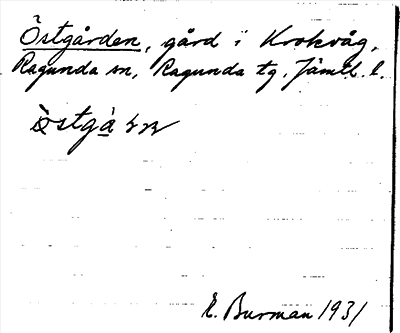 Östgården, gård i Krokvåg,
Ragunda sn, Ragunda tg, Jämtl. l.
E. Burman 1931